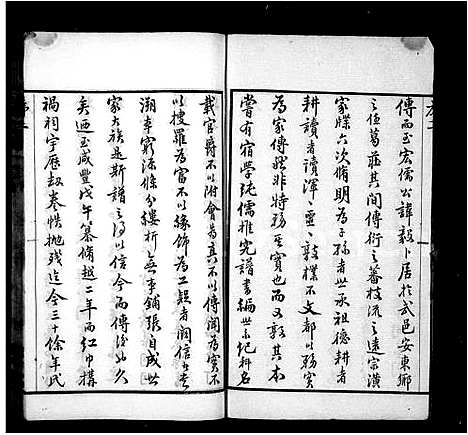 傳而至宏儒公諱毅卜居於武邑安東鄉
之伍葛莊其間傳衍之蕃枝流之遠宗潢
家牒六次脩明為子孫者世承祖德耕者
耕讀者讀渾渾噩噩敦樸不文都以務實
為家傳然非特務其實也而又敦其本
嘗有宿學純儒推究譜書編世系紀科名
載官爵不以附會為真不以傳聞為實不
以搜羅為富不以緣飾為工疑者闕信者
溯本窮源條分縷析無事鋪張自成世
家大族是斯譜之得以信今而傳後也久
矣迺至咸豐戊午纂脩越二年而紅巾構
禍祠宇歷劫卷帙拋殘迄今三十餘年民